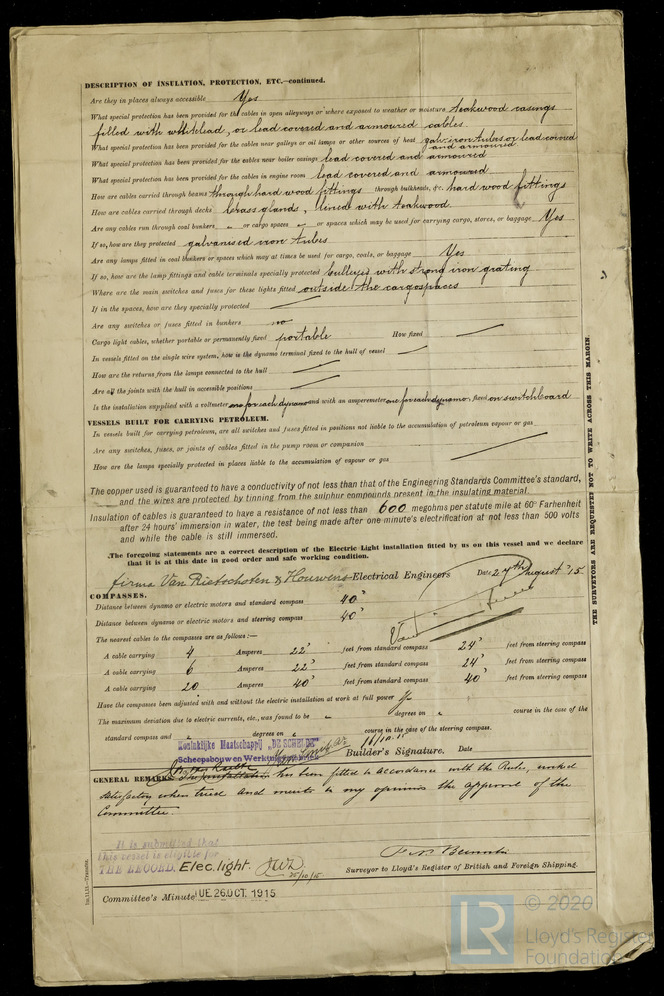 DESCRIPTION OF INSULATION, PROTECTION, ETC.—continued.
Are they in places always accessible Yes
What special protection has been provided for the cables in open alleyways or where exposed to weather or moisture teakwood casings
filled with whitelead, or lead covered and armoured cables
What special protection has been provided for the cables near galleys or oil lamps or other sources of heat galv. iron tubes or lead covered
and armoured
What special protection has been provided for the cables near boiler casings lead covered and armoured
What special protection has been provided for the cables in engine room lead covered and armoured
How are cables carried through beams through hard wood fittings through bulkheads, &c. hard wood fittings
How are cables carried through decks brass glands, lined with teakwood
Are any cables run through coal bunkers „ or cargo spaces „ or spaces which may be used for carrying cargo, stores, or baggage Yes
If so, how are they protected galvanised iron tubes
Are any lamps fitted in coal bunkers or spaces which may at times be used for cargo, coals, or baggage Yes
If so, how are the lamp fittings and cable terminals specially protected bulleyes with strong iron grating
Where are the main switches and fuses for these lights fitted outside the cargospaces
If in the spaces, how are they specially protected —
Are any switches or fuses fitted in bunkers no
Cargo light cables, whether portable or permanently fixed portable How fixed —
In vessels fitted on the single wire system, how is the dynamo terminal fixed to the hull of vessel —
How are the returns from the lamps connected to the hull —
Are all the joints with the hull in accessible positions —
Is the installation supplied with a voltmeter one for each dynamo and with an amperemeter one for each dynamo, fixed on switchboard
VESSELS BUILT FOR CARRYING PETROLEUM.
In vessels built for carrying petroleum, are all switches and fuses fitted in positions not liable to the accumulation of petroleum vapour or gas
Are any switches, fuses, or joints of cables fitted in the pump room or companion
How are the lamps specially protected in places liable to the accumulation of vapour or gas
The copper used is guaranteed to have a conductivity of not less than that of the Engineering Standards Committee's standard,
and the wires are protected by tinning from the sulphur compounds present in the insulating material.
Insulation of cables is guaranteed to have a resistance of not less than 600 megohms per statute mile at 60° Farhenheit
after 24 hours' immersion in water, the test being made after one minute's electrification at not less than 500 volts
and while the cable is still immersed.
The foregoing statements are a correct description of the Electric Light installation fitted by us on this vessel and we declare
that it is at this date in good order and safe working condition.
firma Van Rietschoten & Houwens Electrical Engineers Date 27th August '15
COMPASSES.
Distance between dynamo or electric motors and standard compass 40'
Distance between dynamo or electric motors and steering compass 40'
The nearest cables to the compasses are as follows:—
A cable carrying 4 Amperes 22' feet from standard compass 24' feet from steering compass
A cable carrying 6 Amperes 22' feet from standard compass 24' feet from steering compass
A cable carrying 20 Amperes 40' feet from standard compass 40' feet from steering compass
Have the compasses been adjusted with and without the electric installation at work at full power
The maximum deviation due to electric currents, etc., was found to be „ degrees on „ course in the case of the
standard compass and „ degrees on „ course in the case of the steering compass.
Koninklijke Maatschappij „DE SCHELDE"
Scheepsbouw en Werktuigfabriek
Builder's Signature. Date 16/10.15
GENERAL REMARKS. The installation has been fitted in accordance with the Rules, worked
satisfactory when tried and merits in my opinion the approval of the
Committee.
It is submitted that
this vessel is eligible for
THE RECORD. Elec. light. 25/10/15
Surveyor to Lloyd's Register of British and Foreign Shipping.
Committee's Minute TUE 26 OCT. 1915
THE SURVEYORS ARE REQUESTED NOT TO WRITE ACROSS THIS MARGIN.
LR © 2020
Lloyd's Register
Foundation